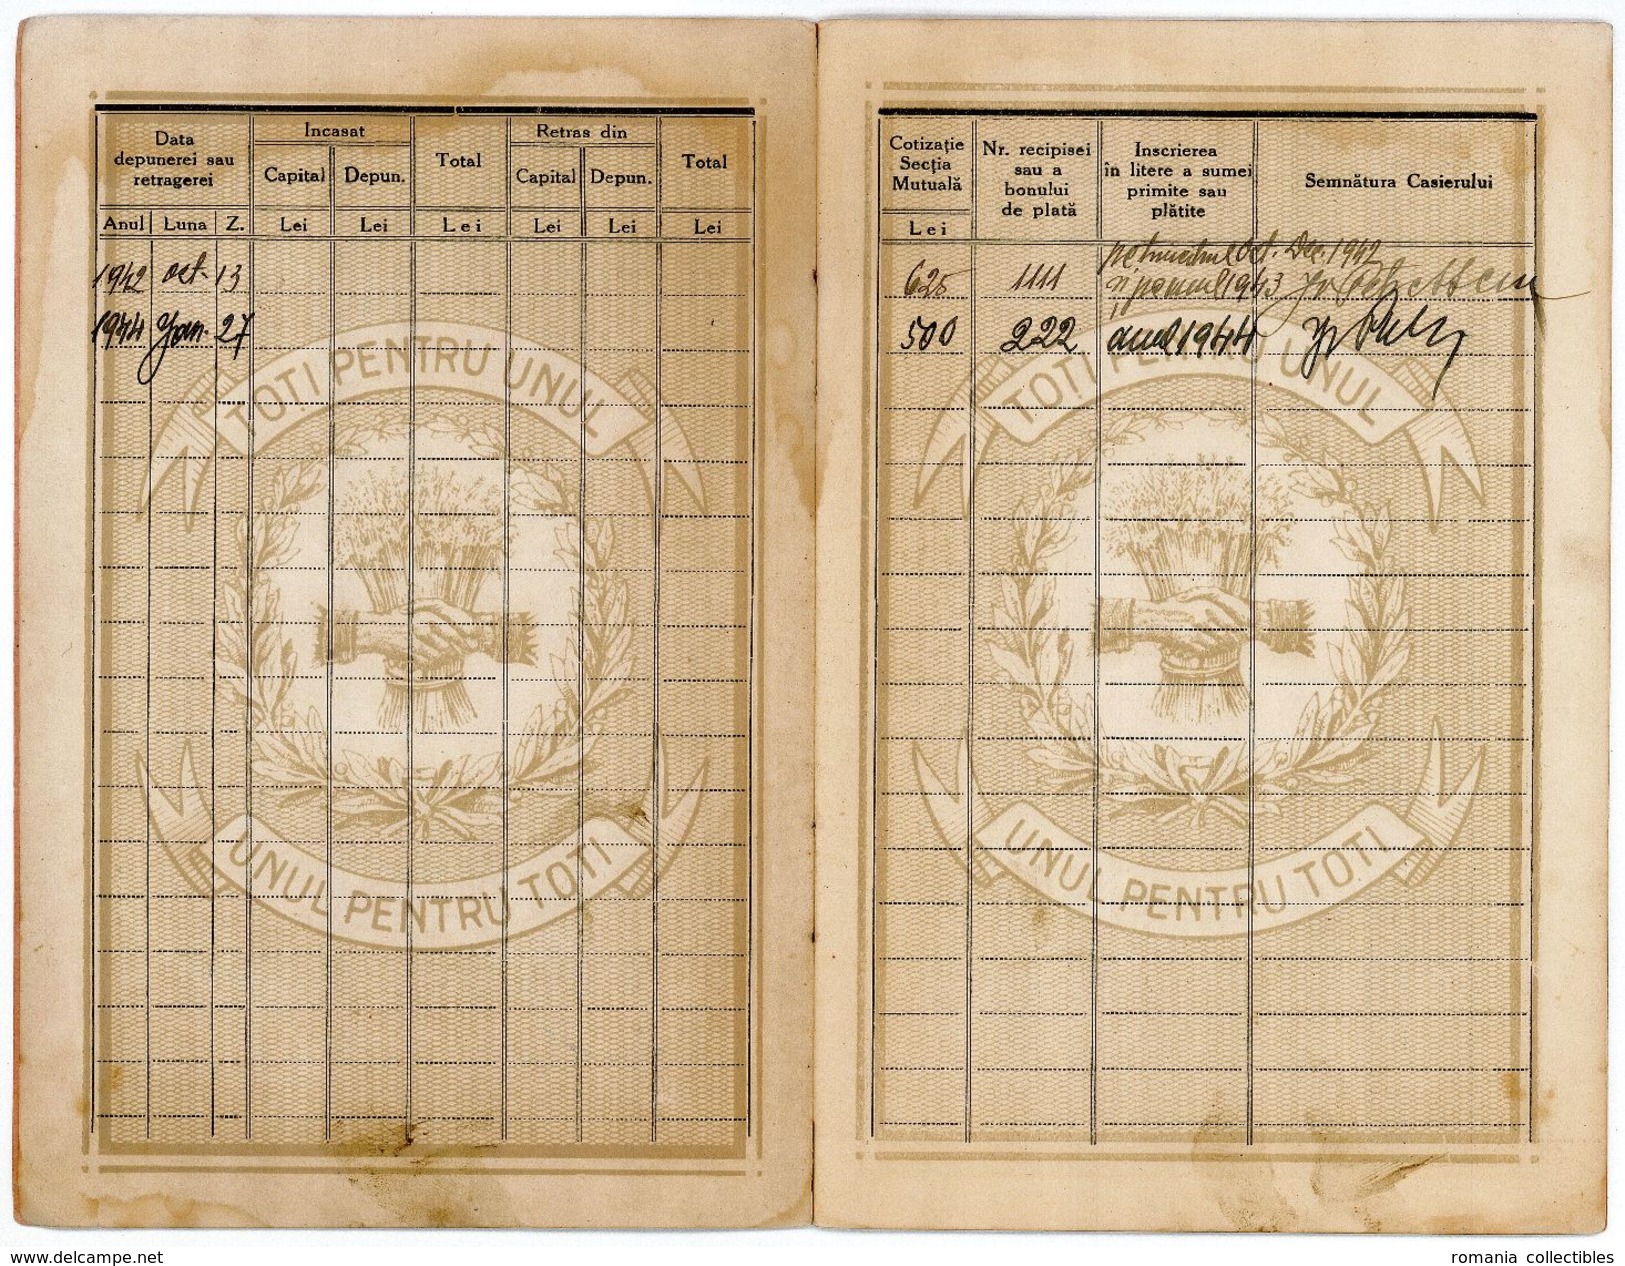 Data
depunerei sau
retragerei
Incasat
Total
Retras din
Total
Capital
Depun.
Capital
Depun.
Anul
Luna
Z.
Lei
Lei
Lei
Lei
Lei
Lei
1942 oct. 13
1944 Jan. 27
TOȚI PENTRU UNUL
UNUL PENTRU TOȚI
Cotizație
Secția
Mutuală
Nr. recipisei
sau a
bonului
de plată
Inscrierea
în litere a sumei
primite sau
plătite
Semnătura Casierului
Lei
Oct. Dec. 1942
625 1111 1943
500 222 anul 1944
TOȚI PENTRU UNUL
UNUL PENTRU TOȚI
www.delcampe.net
romania collectibles